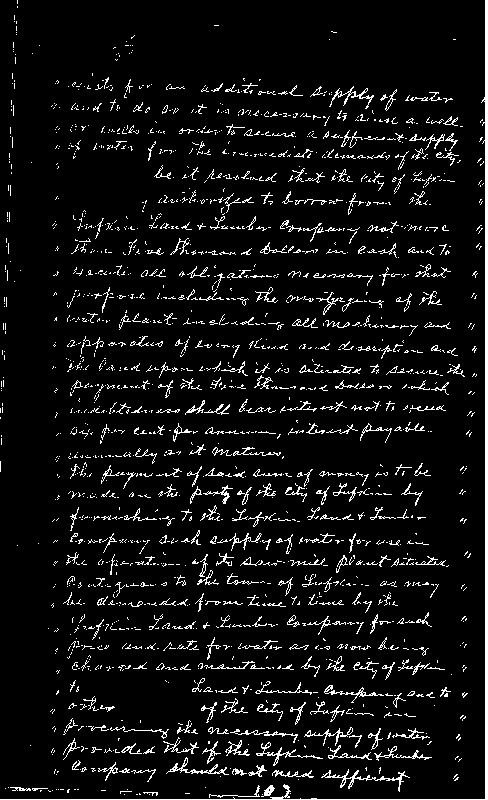 35
" exists for an additional supply of water "
" and to do so it is necessary to sink a well "
" or wells in order to secure a sufficient supply
" of water for the immediate demands of the city, "
" be it resolved that the City of Lufkin
" authorized to borrow from the "
" Lufkin Land & Lumber Company not more "
" than Five Thousand Dollars in Cash and to "
" execute all obligations necessary for that "
" purpose including the mortgaging of the "
" water plant including all machinery and "
" apparatus of every kind and description and "
" the land upon which it is situated to secure the "
" payment of the Five Thousand Dollars which "
" indebtedness shall bear interest not to exceed "
" six per cent per annum, interest payable "
" annually as it matures.
" The payment of said sum of money is to be "
" made on the part of the City of Lufkin by "
" furnishing to the Lufkin Land & Lumber "
" Company such supply of water for use in "
" the operation of its saw mill plant situated "
" Contiguous to the town of Lufkin as may "
" be demanded from time to time by the "
" Lufkin Land & Lumber Company for such "
" price and rate for water as is now being "
" charged and maintained by the City of Lufkin "
" to Land & Lumber Company and to "
" other of the City of Lufkin in "
" procuring the necessary supply of water, "
" provided that if the Lufkin Land & Lumber "
" Company should not need sufficient "
103